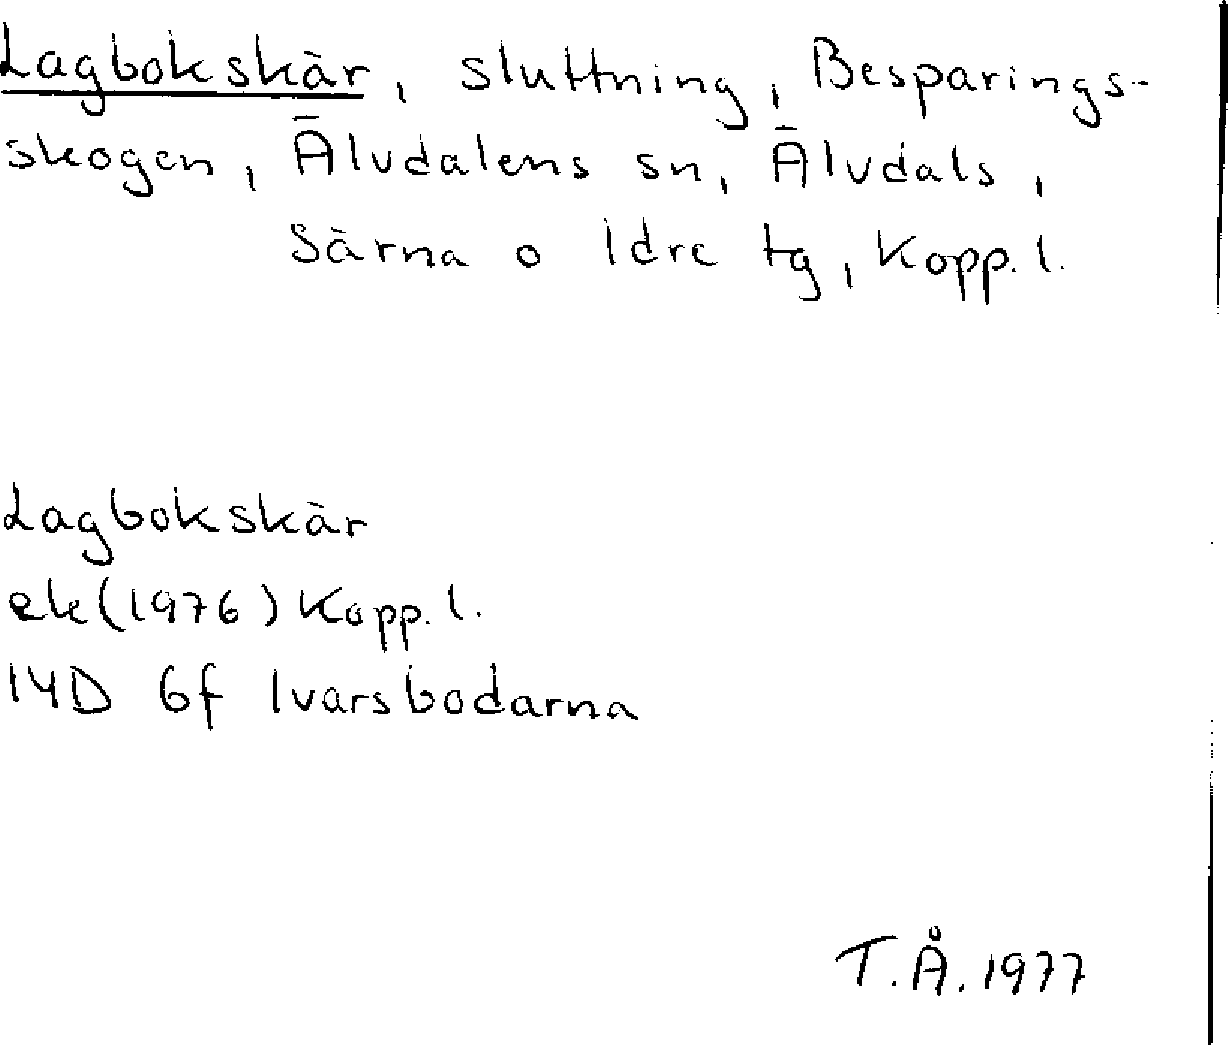 Lagbokskär, sluttning, Besparings-
skogen, Älvdalens sn, Älvdals,
Särna o Idre tg, Kopp. l.
Lagbokskär
ek (1976) Kopp. l.
14D 6f Ivarsbodarna
T.Å. 1977